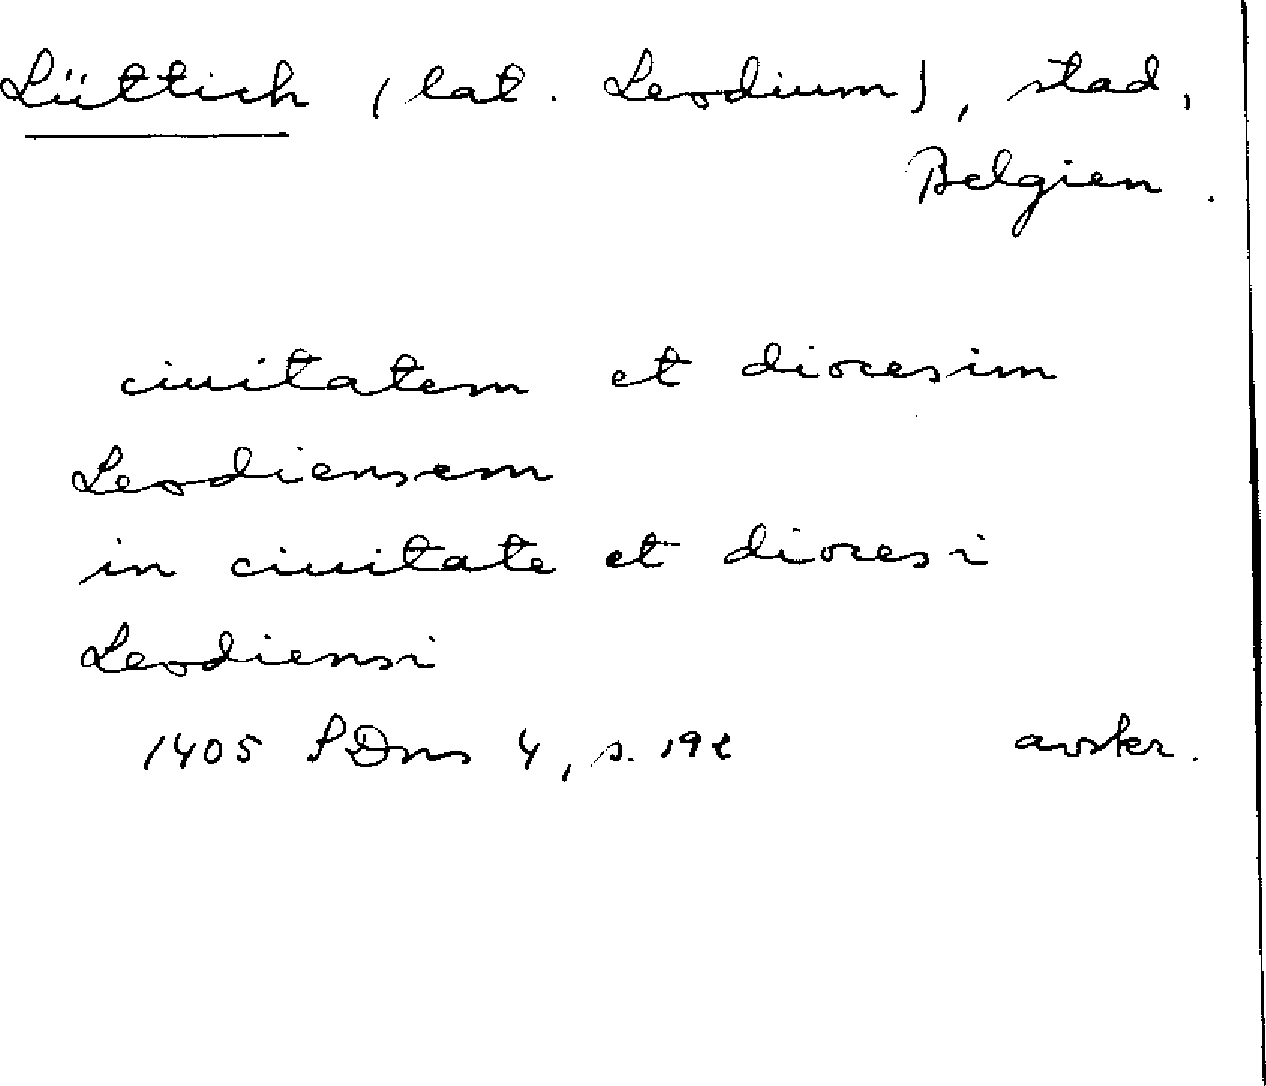 Lüttich (lat. Leodium), stad,
Belgien.
ciuitatem et diocesim
Leodiensem
in ciuitate et diocesi
Leodiensi
1405 SDns 4, s. 192 avskr.